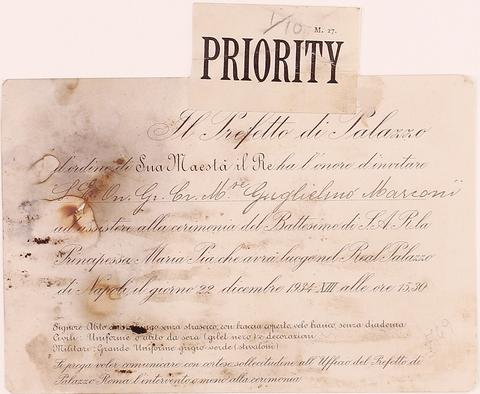 1/10
M. 27.
PRIORITY
Il Prefetto di Palazzo
d'ordine di Sua Maestà il Re ha l'onore d'invitare
S. E. On. Gr. Cr. M.se Guglielmo Marconi
ad assistere alla cerimonia del Battesimo di S.A.R. la
Principessa Maria Pia che avrà luogo nel Real Palazzo
di Napoli, il giorno 22 dicembre 1934-XIII alle ore 15,30
Signore: Abito senza strascico, con braccia coperte, velo bianco, senza diadema
Civili: Uniforme o abito da sera (gilet nero) e decorazioni
Militare: Grande Uniforme grigio-verde (stivaloni)
Si prega voler comunicare con cortese sollecitudine all'Ufficio del Prefetto di
Palazzo Roma l'intervento o meno alla cerimonia